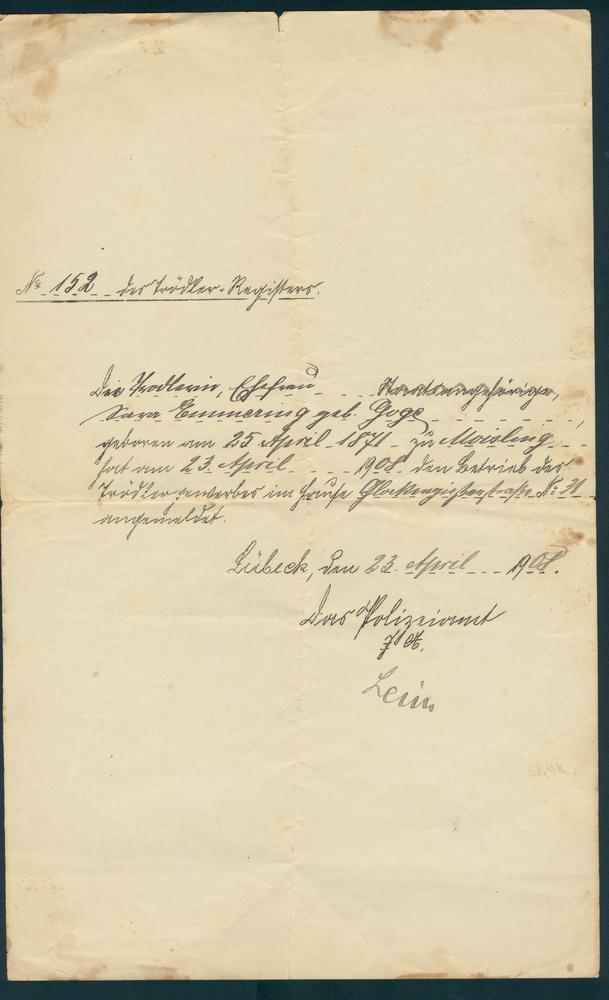 No 152 des Trödler-Registers.
Die Trödlerin, Ehefrau Staatsangehörige,
Sara Emmering geb. Goge,
geboren am 25 April 1871 zu Moisling
hat am 23. April 1908 den Betrieb des
Trödlergewerbes im Hause Glockengießerstraße No 21
angemeldet.
Lübeck, den 23. April 1908.
Das Polizeiamt